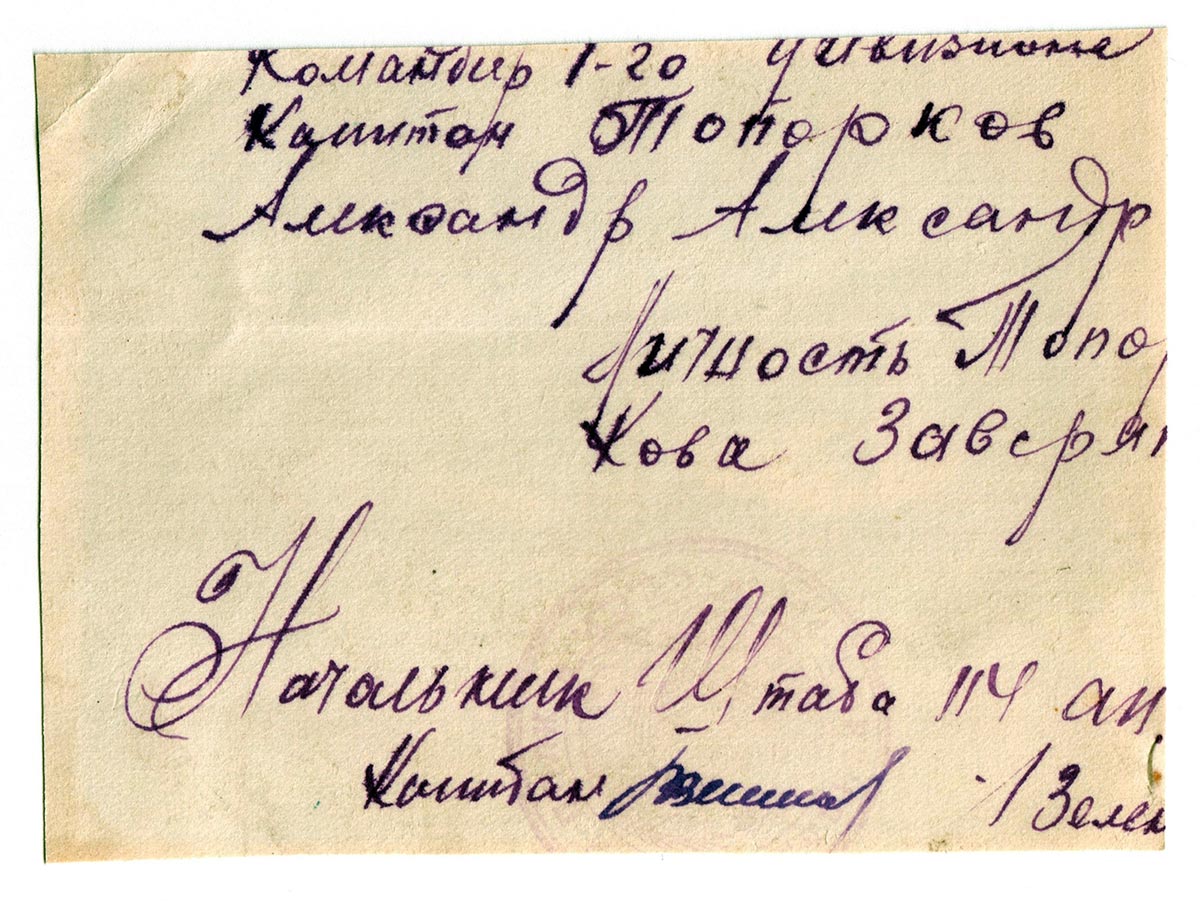 Командир 1-го дивизиона
Капитан Топорков
Александр Александр
Личность Топор
кова Заверяю
Начальник Штаба 114 ап
Капитан
/Зелен